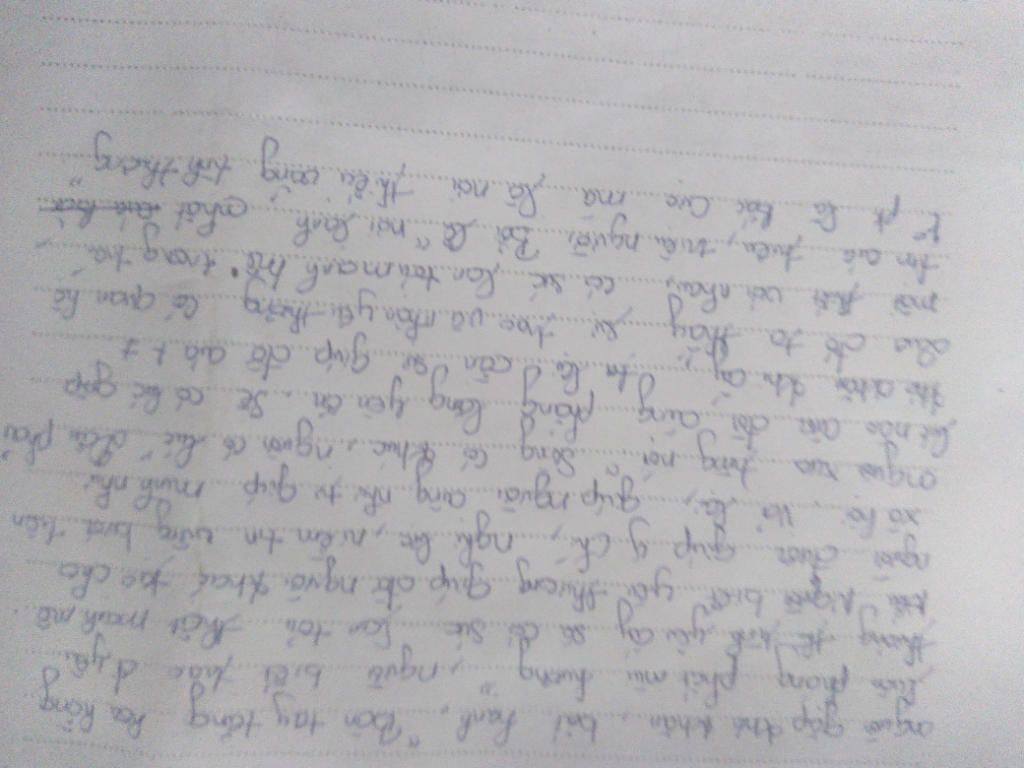 người gặp khó khăn, bất hạnh. "Bàn tay tặng hoa hồng
luôn phảng phất mùi hương", người biết trao đi yêu
thương thì tình yêu ấy sẽ có sức lan toả thật mạnh mẽ
Người biết yêu thương giúp đỡ người khác tạo cho
người được giúp ý chí, nghị lực, niềm tin vững bước trên
xã hội. Và lại, giúp người cũng như tự giúp mình như
người xưa từng nói "sông có khúc, người có lúc" đâu phải
lúc nào cuộc đời cũng phẳng lặng yên ổn. Sẽ có lúc gặp
khó khăn khi ấy, ta lại cần sự giúp đỡ của
cho ta thấy sự trao và nhận yêu thương có quan hệ
mật thiết với nhau, có sức lan toả mạnh mẽ trong trái
tim của triệu, triệu người. Bởi lẽ "nơi lạnh nhất
k phải là Bắc Cực mà là nơi thiếu vắng tình thương"